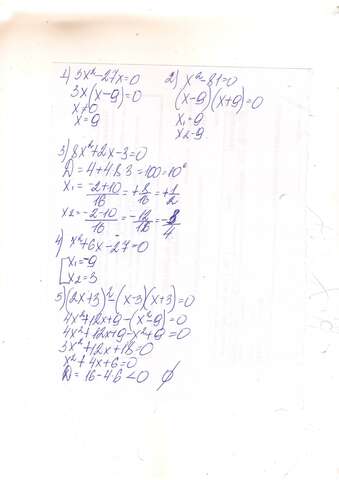 1) 3x²-27x=0
3x(x-9)=0
x≠0
x=9
2) x²-81=0
(x-9)(x+9)=0
x₁=9
x₂-9
3) 8x²+2x-3=0
D=4+4·8·3=100=10²
x₁=(-2+10)/16=+8/16=+1/2
x₂=(-2-10)/16=-12/16=-3/4
4) x²+6x-27=0
[x₁=-9
x₂=3
5) (2x+3)²-(x-3)(x+3)=0
4x²+12x+9-(x²-9)=0
4x²+12x+9-x²+9=0
3x²+12x+18=0
x²+4x+6=0
D=16-4·6<0 ∅